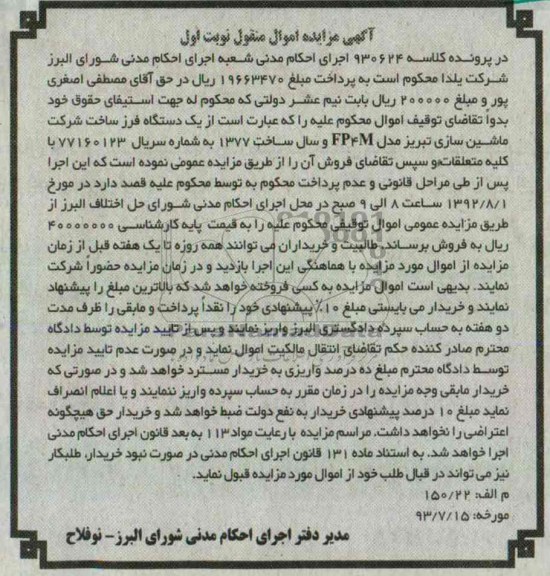 آگهی مزایده اموال منقول نوبت اول
در پرونده کلاسه ۹۳۰۶۲۴ اجرای احکام مدنی شعبه اجرای احکام مدنی شورای البرز
شرکت یلدا محکوم است به پرداخت مبلغ ۱۹۶۶۳۴۷۰ ریال در حق آقای مصطفی اصغری
پور و مبلغ ۲۰۰۰۰۰ ریال بابت نیم عشر دولتی که محکوم له جهت استیفای حقوق خود
بدوا تقاضای توقیف اموال محکوم علیه را که عبارت است از یک دستگاه فرز ساخت شرکت
ماشین سازی تبریز مدل FP۴M و سال ساخت ۱۳۷۷ به شماره سریال ۷۷۱۶۰۱۲۳ با
کلیه متعلقات،و سپس تقاضای فروش آن را از طریق مزایده عمومی نموده است که این اجرا
پس از طی مراحل قانونی و عدم پرداخت محکوم به توسط محکوم علیه قصد دارد در مورخ
۱۳۹۲/۸/۱ ساعت ۸ الی ۹ صبح در محل اجرای احکام مدنی شورای حل اختلاف البرز از
طریق مزایده عمومی اموال توقیفی محکوم علیه را به قیمت پایه کارشناسی ۴۰۰۰۰۰۰۰
ریال به فروش برساند. طالبیت و خریداران می توانند همه روزه تا یک هفته قبل از زمان
مزایده از اموال مورد مزایده با هماهنگی این اجرا بازدید و در زمان مزایده حضوراً شرکت
نمایند. بدیهی است اموال مزایده به کسی فروخته خواهد شد که بالاترین مبلغ را پیشنهاد
نمایند و خریدار می بایستی مبلغ ۱۰٪ پیشنهادی خود را نقداً پرداخت و مابقی را ظرف مدت
دو هفته به حساب سپرده دادگستری البرز واریز نمایند و پس از تایید مزایده توسط دادگاه
محترم صادر کننده حکم تقاضای انتقال مالکیت اموال نماید و در صورت عدم تایید مزایده
توسط دادگاه محترم مبلغ ده درصد واریزی به خریدار مسترد خواهد شد و در صورتی که
خریدار مابقی وجه مزایده را در زمان مقرر به حساب سپرده واریز ننمایند و یا اعلام انصراف
نماید مبلغ ۱۰ درصد پیشنهادی خریدار به نفع دولت ضبط خواهد شد و خریدار حق هیچگونه
اعتراضی را نخواهد داشت. مراسم مزایده با رعایت مواد ۱۱۳ به بعد قانون اجرای احکام مدنی
اجرا خواهد شد. به استناد ماده ۱۳۱ قانون اجرای احکام مدنی در صورت نبود خریدار، طلبکار
نیز می تواند در قبال طلب خود از اموال مورد مزایده قبول نماید.
م الف: ۱۵۰/۲۲
مورخه: ۹۳/۷/۱۵
مدیر دفتر اجرای احکام مدنی شورای البرز- نوفلاح